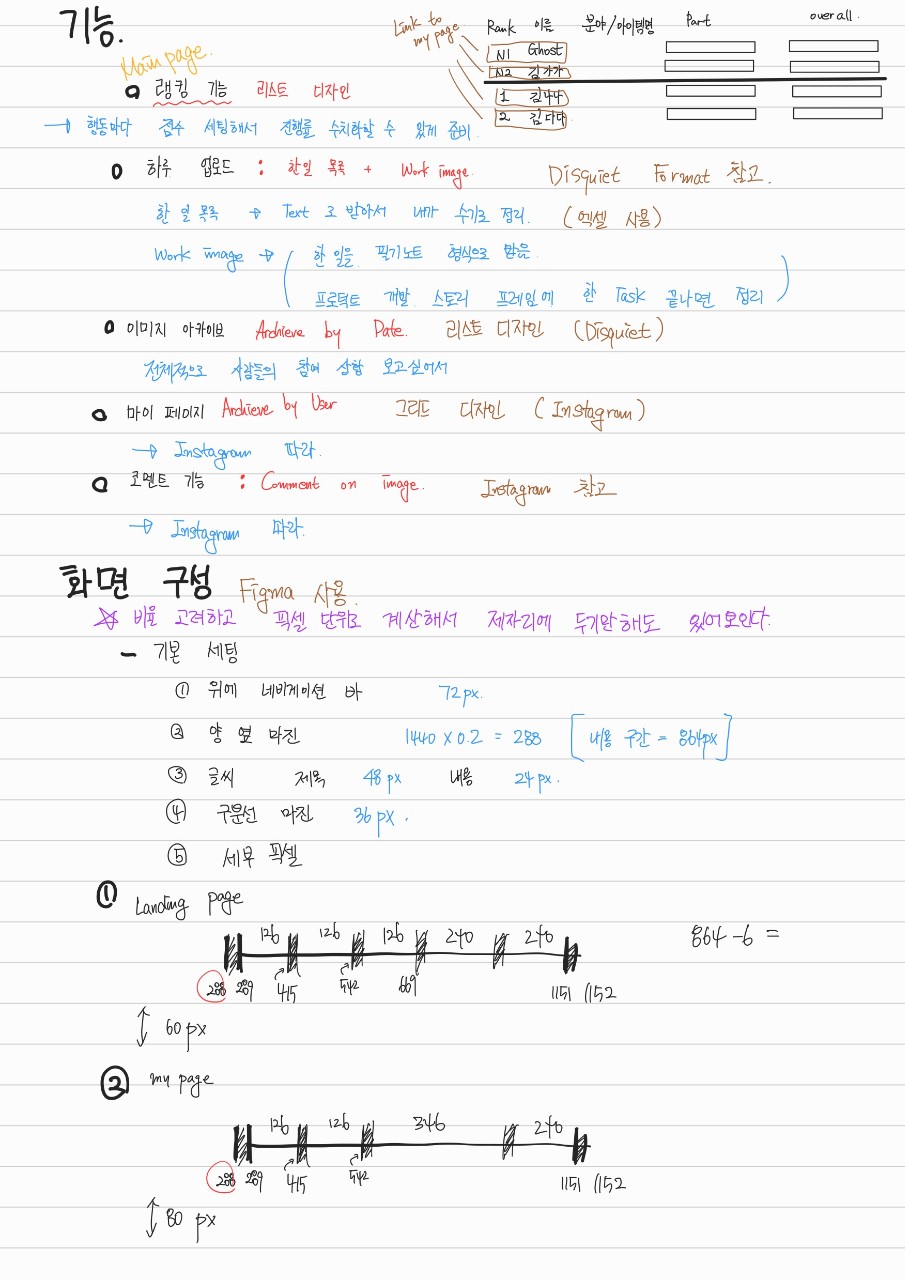 기능.
Link to my page
Rank 이름 분야/아이템명 Part overall.
N1 Ghost
N2 김가가
1 김나나
2 김다다
Main page.
랭킹 기능 리스트 디자인
→ 행동마다 점수 세팅해서 진행률 수치화할 수 있게 준비.
하루 업로드 : 한일 목록 + Work image. Disquiet Format 참고.
한 일 목록 → Text 로 받아서 내가 수기로 정리. (엑셀 사용)
Work image → ( 한 일을 필기노트 형식으로 받음.
프로덕트 개발 스토리 프레임에 한 Task 끝나면 정리 )
이미지 아카이브 Archieve by Date. 리스트 디자인 (Disquiet)
전체적으로 사람들의 참여 상황 보고싶어서
마이 페이지 Archieve by User 그리드 디자인 (Instagram)
→ Instagram 따라.
코멘트 기능 : Comment on image. Instagram 참고
→ Instagram 따라.
화면 구성 Figma 사용.
☆ 비율 고려하고 픽셀 단위로 계산해서 제자리에 두기만해도 있어보인다.
- 기본 세팅
① 위에 네비게이션 바 72px.
② 양 옆 마진 1440 x 0.2 = 288 [내용 구간 = 864px]
③ 글씨 제목 48px 내용 24px.
④ 구분선 마진 36px.
⑤ 세부 픽셀
① Landing page
126 126 126 240 240 864-6 =
288 289 415 542 669 1151 1152
60px
② my page
126 126 346 240
288 289 415 542 1151 1152
80 px